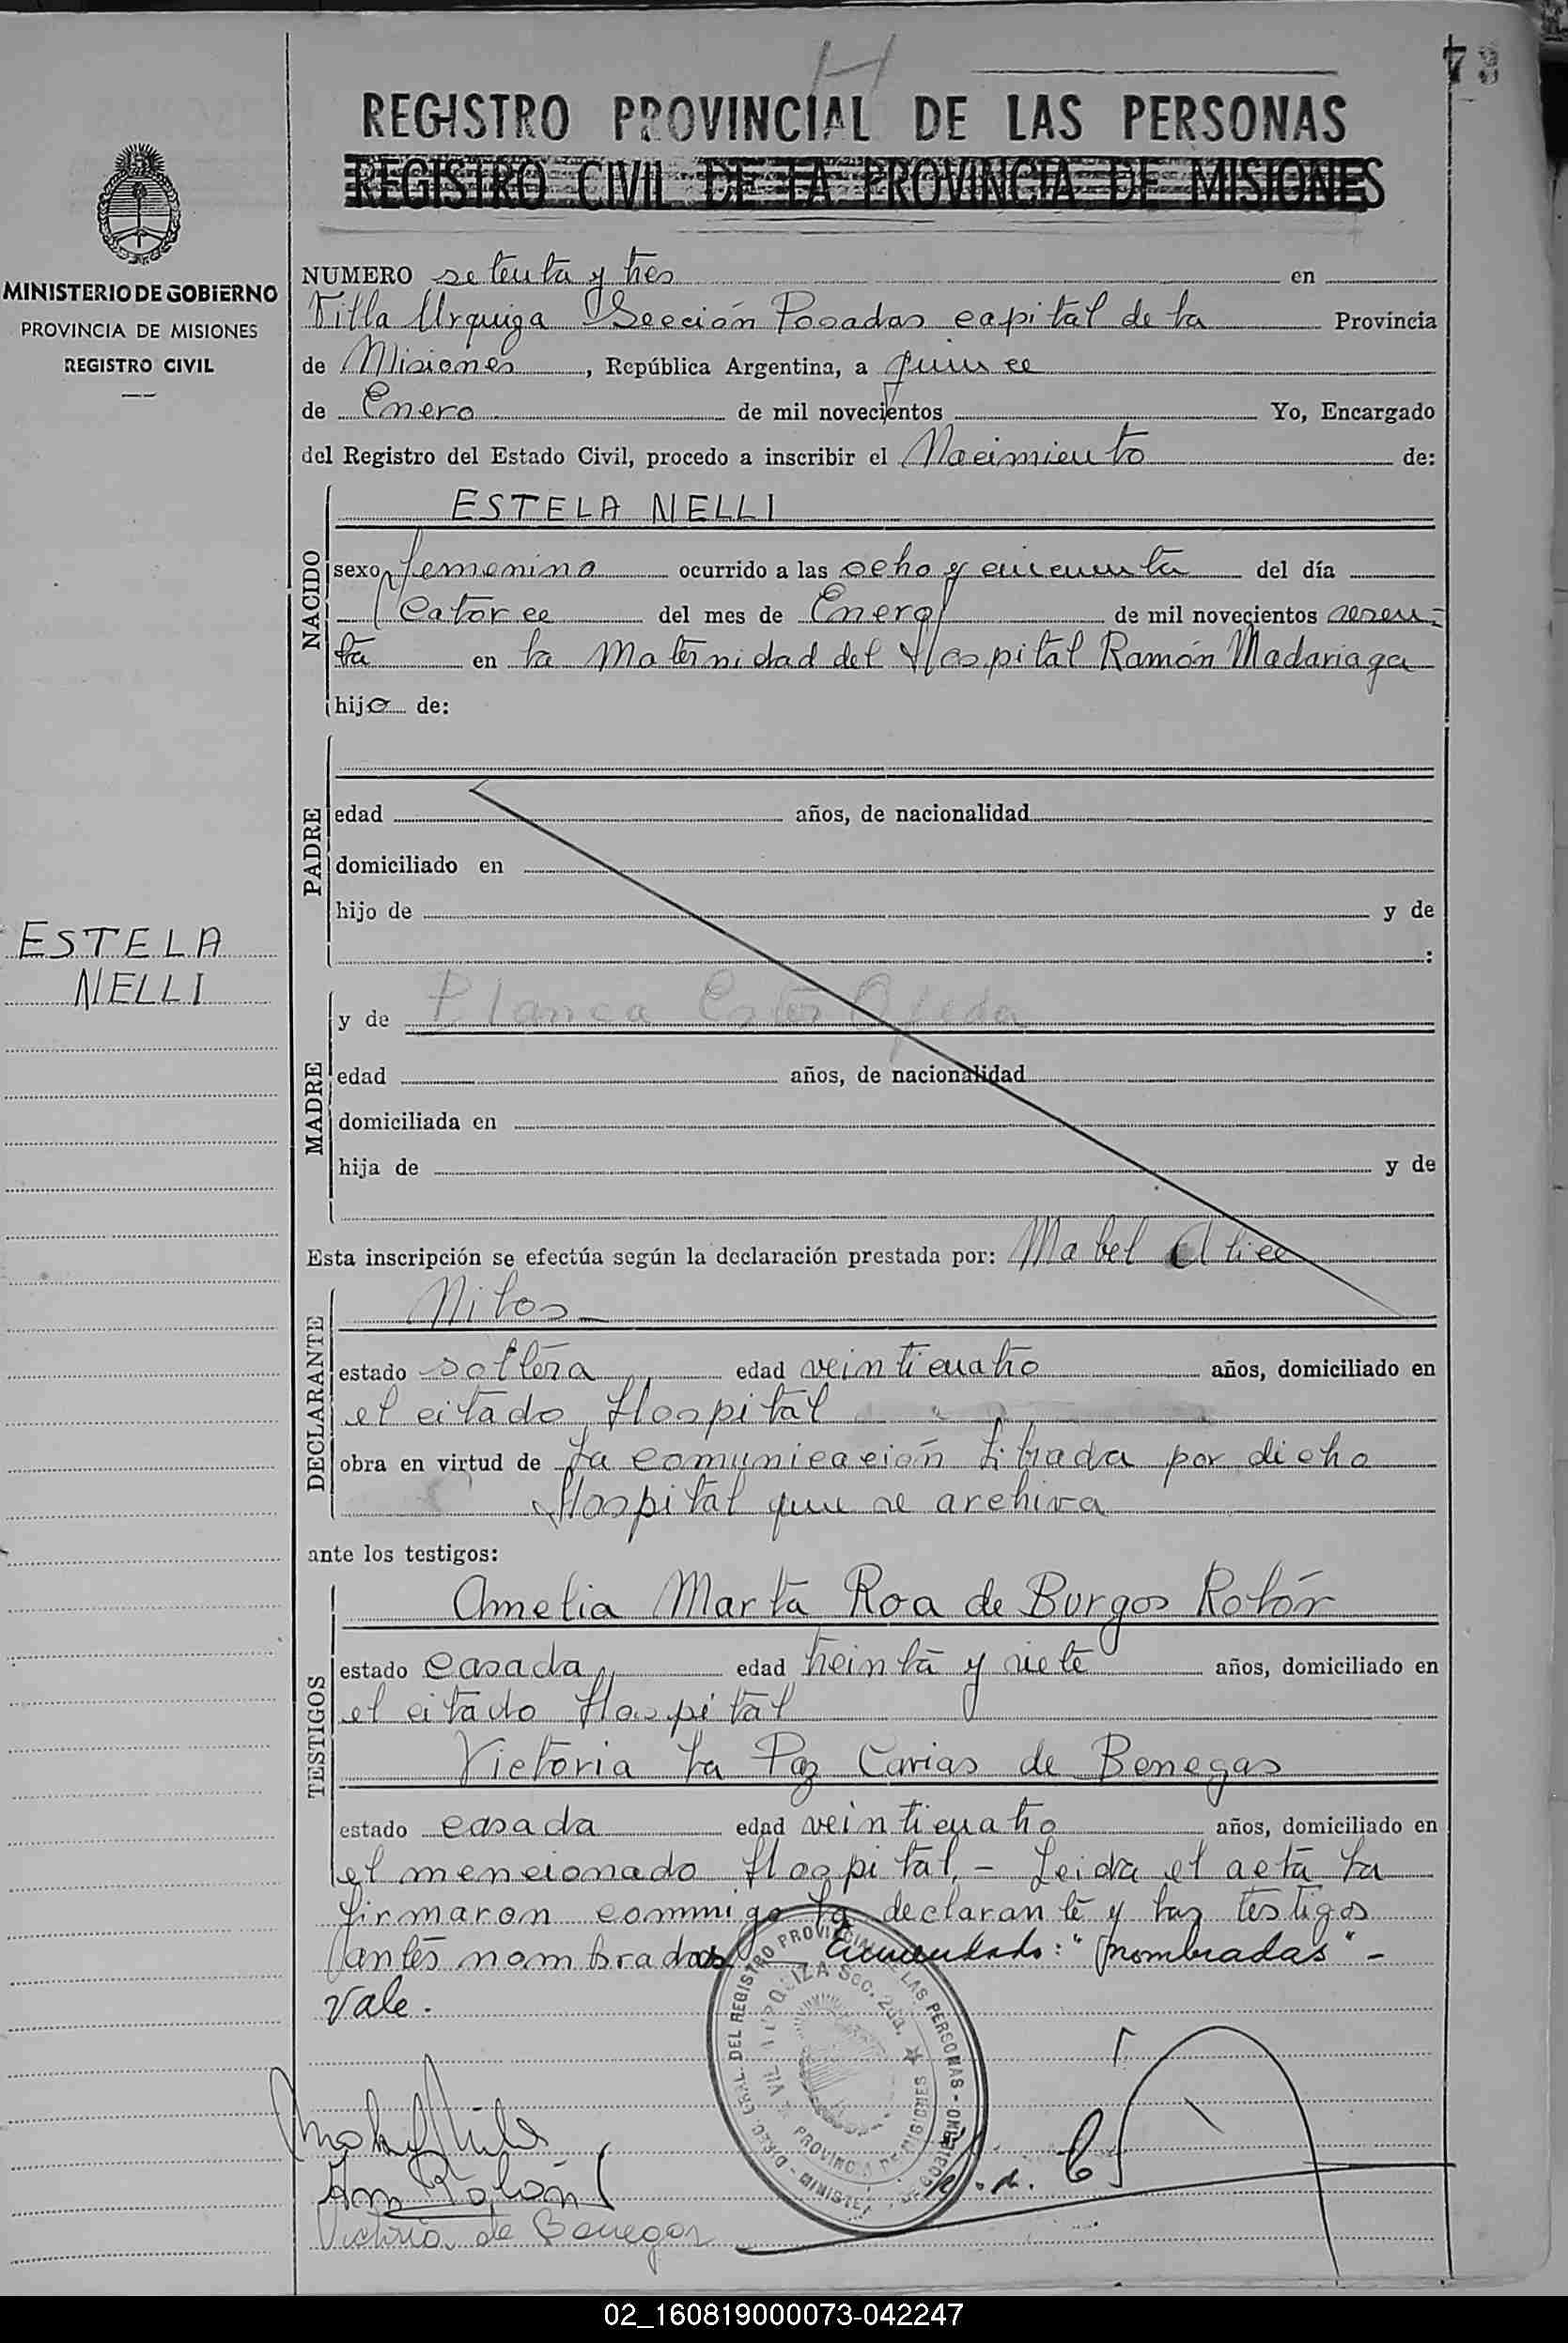 73
REGISTRO PROVINCIAL DE LAS PERSONAS
REGISTRO CIVIL DE LA PROVINCIA DE MISIONES
MINISTERIO DE GOBIERNO
PROVINCIA DE MISIONES
REGISTRO CIVIL
NUMERO setenta y tres en
Villa Urquiza Sección Posadas capital de la Provincia
de Misiones, República Argentina, a quince
de Enero de mil novecientos Yo, Encargado
del Registro del Estado Civil, procedo a inscribir el Nacimiento de:
NACIDO
ESTELA NELLI
sexo femenino ocurrido a las ocho y cincuenta del día
Catorce del mes de Enero de mil novecientos sesen-
ta en la Maternidad del Hospital Ramón Madariaga
hijo de:
PADRE
edad años, de nacionalidad
domiciliado en
hijo de y de
:
ESTELA
NELLI
MADRE
y de Blanca Ester Ojeda
edad años, de nacionalidad
domiciliada en
hija de y de
Esta inscripción se efectúa según la declaración prestada por: Mabel Alice
DECLARANTE
Milos
estado soltera edad veinticuatro años, domiciliado en
el citado Hospital
obra en virtud de la comunicación librada por dicho
Hospital que se archiva
ante los testigos:
TESTIGOS
Amelia Marta Roa de Burgos Rolón
estado casada edad treinta y siete años, domiciliado en
el citado Hospital
Victoria La Paz Carias de Benegas
estado casada edad veinticuatro años, domiciliado en
el mencionado Hospital.- Leida el acta la
firmaron conmigo la declarante y las testigos
antes nombradas Enmendado: "nombradas" -
Vale.
DIREC. GRAL. DEL REGISTRO PROVINCIAL DE LAS PERSONAS - MINISTERIO DE GOBIERNO
VILLA URQUIZA Sec. 2da.
PROVINCIA DE MISIONES
Victoria de Benegas
02_160819000073-042247